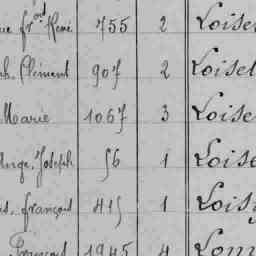 frçois René 755 2 Loisel
Clément 907 2 Loisel
Marie 1067 3 Loise
Ange Joseph 56 1 Loise
françois 415 1 Lois
François 1945 4